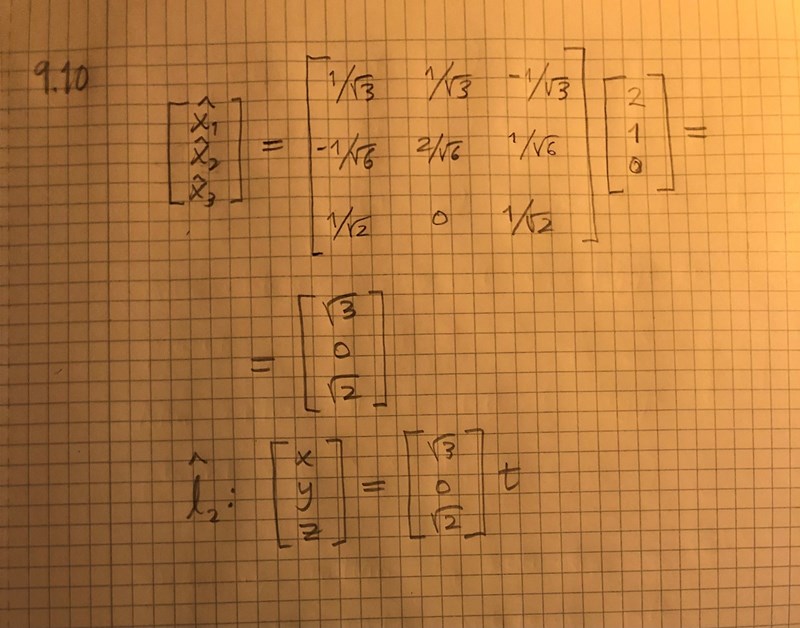 9.10
[x̂₁ x̂₂ x̂₃] = [1/√3 1/√3 -1/√3
-1/√6 2/√6 1/√6
1/√2 0 1/√2] [2 1 0] =
= [√3 0 √2]
l̂₂: [x y z] = [√3 0 √2] t